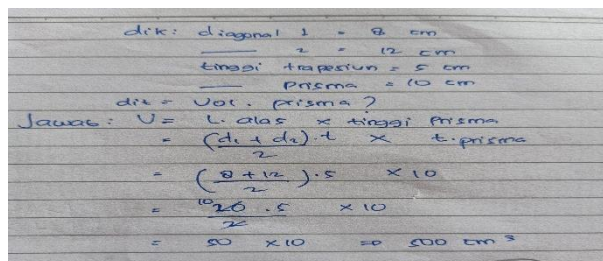 dik: diagonal 1 = 8 cm
— 2 = 12 cm
tinggi trapesiun = 5 cm
— Prisma = 10 cm
dit = Vol. prisma?
Jawab: V = L. alas x tinggi Prisma
= (d1 + d2).t / 2 x t.prisma
= (8 + 12 / 2).5 x 10
= 10 20 .5 / 2 x 10
= 50 x 10 => 500 cm³